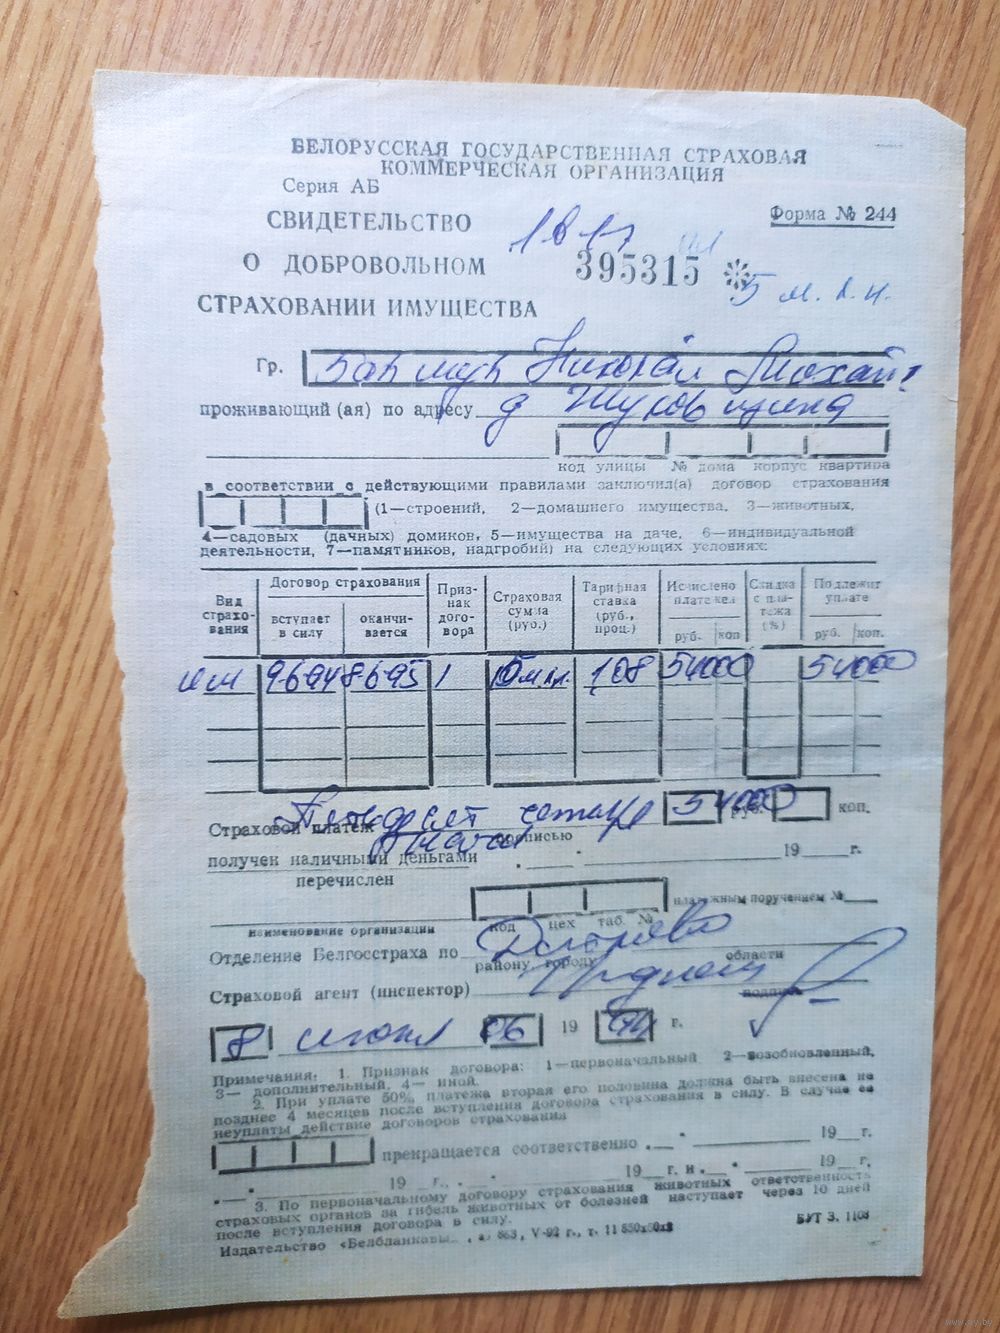 БЕЛОРУССКАЯ ГОСУДАРСТВЕННАЯ СТРАХОВАЯ
КОММЕРЧЕСКАЯ ОРГАНИЗАЦИЯ
Серия АБ
Форма № 244
СВИДЕТЕЛЬСТВО
О ДОБРОВОЛЬНОМ 395315
5 м.л.н.
СТРАХОВАНИИ ИМУЩЕСТВА
Гр. Николай
проживающий (ая) по адресу д Жуковщина
код улицы № дома корпус квартира
в соответствии с действующими правилами заключил(а) договор страхования
(1—строений, 2—домашнего имущества, 3—животных,
4—садовых (дачных) домиков, 5—имущества на даче, 6—индивидуальной
деятельности, 7—памятников, надгробий) на следующих условиях:
Вид страхо-вания Договор страхования вступает в силу оканчи-вается Приз-нак дого-вора Страховая сумма (руб.) Тарифная ставка (руб., проц.) Исчислено платежей руб. коп Скидка с пла-тежа (%) Подлежит уплате руб. коп.
1 1,08 54000 54000
Страховой платеж Пятьдесят четыре 54000 руб. коп.
тысячи прописью
получен наличными деньгами 19 г.
перечислен
платежным поручением №
код цех таб. №
наименование организации
Отделение Белгосстраха по
району, городу области
Страховой агент (инспектор)
подпись
8 июня 06 19 94 г.
Примечания: 1. Признак договора: 1—первоначальный 2—возобновленный,
3— дополнительный, 4— иной.
2. При уплате 50% платежа вторая его половина должна быть внесена не
позднее 4 месяцев после вступления договора страхования в силу. В случае ее
неуплаты действие договоров страхования
прекращается соответственно 19 г.
19 г., 19 г. и 19 г.
3. По первоначальному договору страхования животных ответственность
страховых органов за гибель животных от болезней наступает через 10 дней
после вступления договора в силу.
БУТ З. 1108
Издательство «Белбланкавы», 863, V-92 г., т. 11 850х50х2